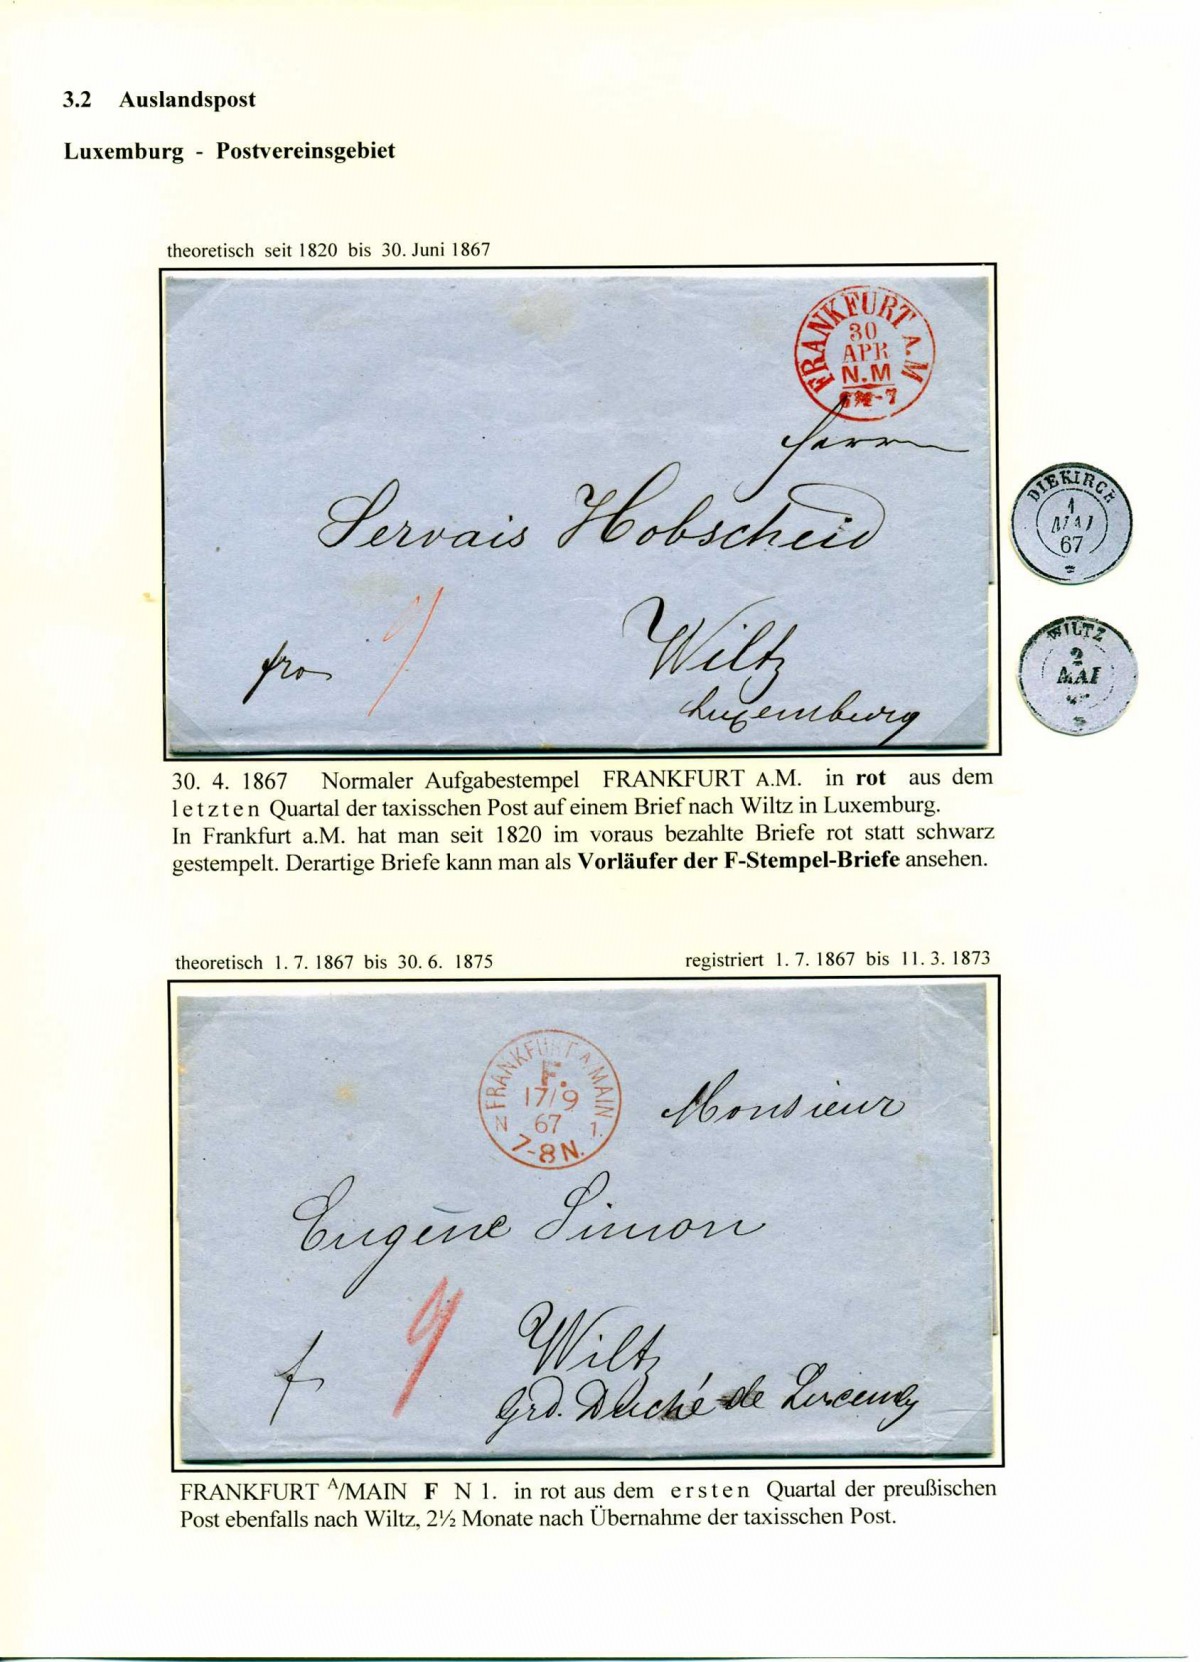 3.2 Auslandspost
Luxemburg - Postvereinsgebiet
theoretisch seit 1820 bis 30. Juni 1867
FRANKFURT A.M
30
APR
N.M
6½-7
Herrn
Servais Hobscheid
Wiltz
Luxemburg
fro
DIEKIRCH
1
MAI
67
WILTZ
2
MAI
30. 4. 1867 Normaler Aufgabestempel FRANKFURT A.M. in rot aus dem
letzten Quartal der taxisschen Post auf einem Brief nach Wiltz in Luxemburg.
In Frankfurt a.M. hat man seit 1820 im voraus bezahlte Briefe rot statt schwarz
gestempelt. Derartige Briefe kann man als Vorläufer der F-Stempel-Briefe ansehen.
theoretisch 1. 7. 1867 bis 30. 6. 1875 registriert 1. 7. 1867 bis 11. 3. 1873
FRANKFURT A/MAIN
F.
17/9
67
N 1.
7-8 N.
Monsieur
Eugène Simon
9
Wiltz
f
Grd. Duché de Luxembg
FRANKFURT A/MAIN F N 1. in rot aus dem ersten Quartal der preußischen
Post ebenfalls nach Wiltz, 2½ Monate nach Übernahme der taxisschen Post.